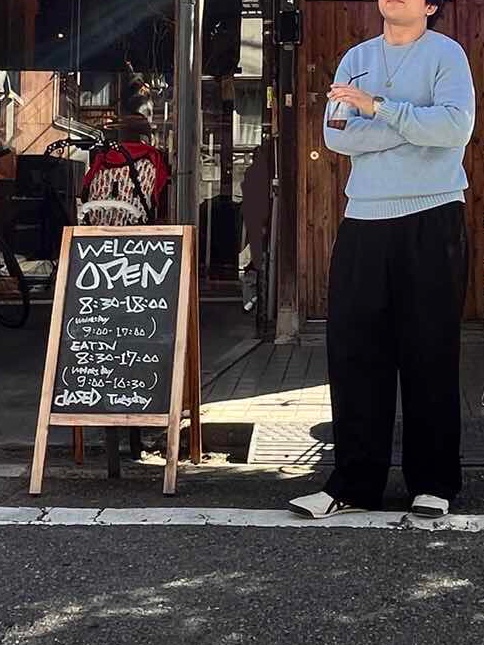 WELCOME
OPEN
8:30-18:00
(Wednesday
9:00-17:00)
EAT IN
8:30-17:00
(Wednesday
9:00-16:30)
CLOSED Tuesday